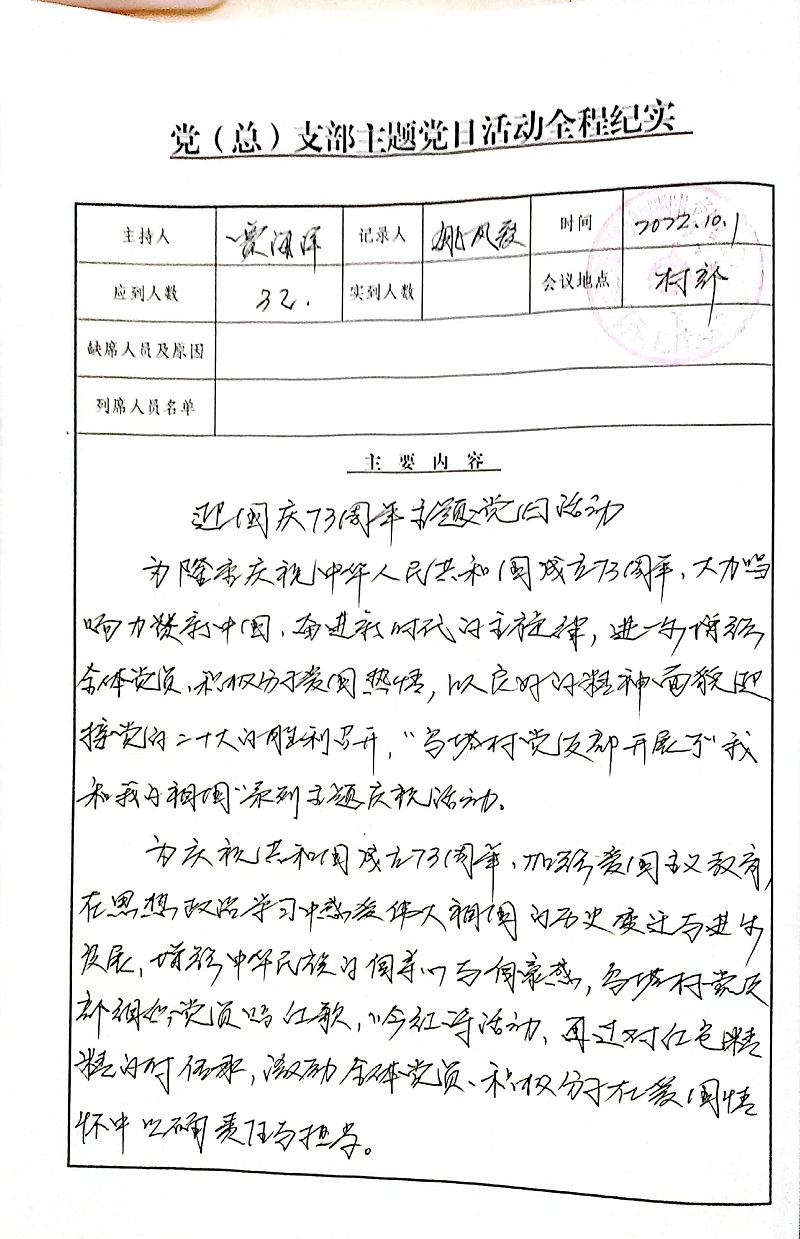 党（总）支部主题党日活动全程纪实
主持人 记录人 时间 2022.10.1
应到人数 32. 实到人数 会议地点 村部
缺席人员及原因
列席人员名单
主要内容
迎国庆73周年主题党日活动
为隆重庆祝中华人民共和国成立73周年、大力唱
响力赞新中国、奋进新时代的主旋律，进一步增强
全体党员、积极分子爱国热情，以良好的精神面貌迎
接党的二十大的胜利召开，“乌塔村党支部开展了“我
和我的祖国”系列主题庆祝活动。
为庆祝共和国成立73周年、加强爱国主义教育，
在思想政治学习中感受伟大祖国的历史变迁与进步
发展，增强中华民族的自豪感，乌塔村党支
部组织党员唱红歌，等活动，再过对红色精
的时，激励全体党员、积极分子在爱国情
怀中明确责任与担当。